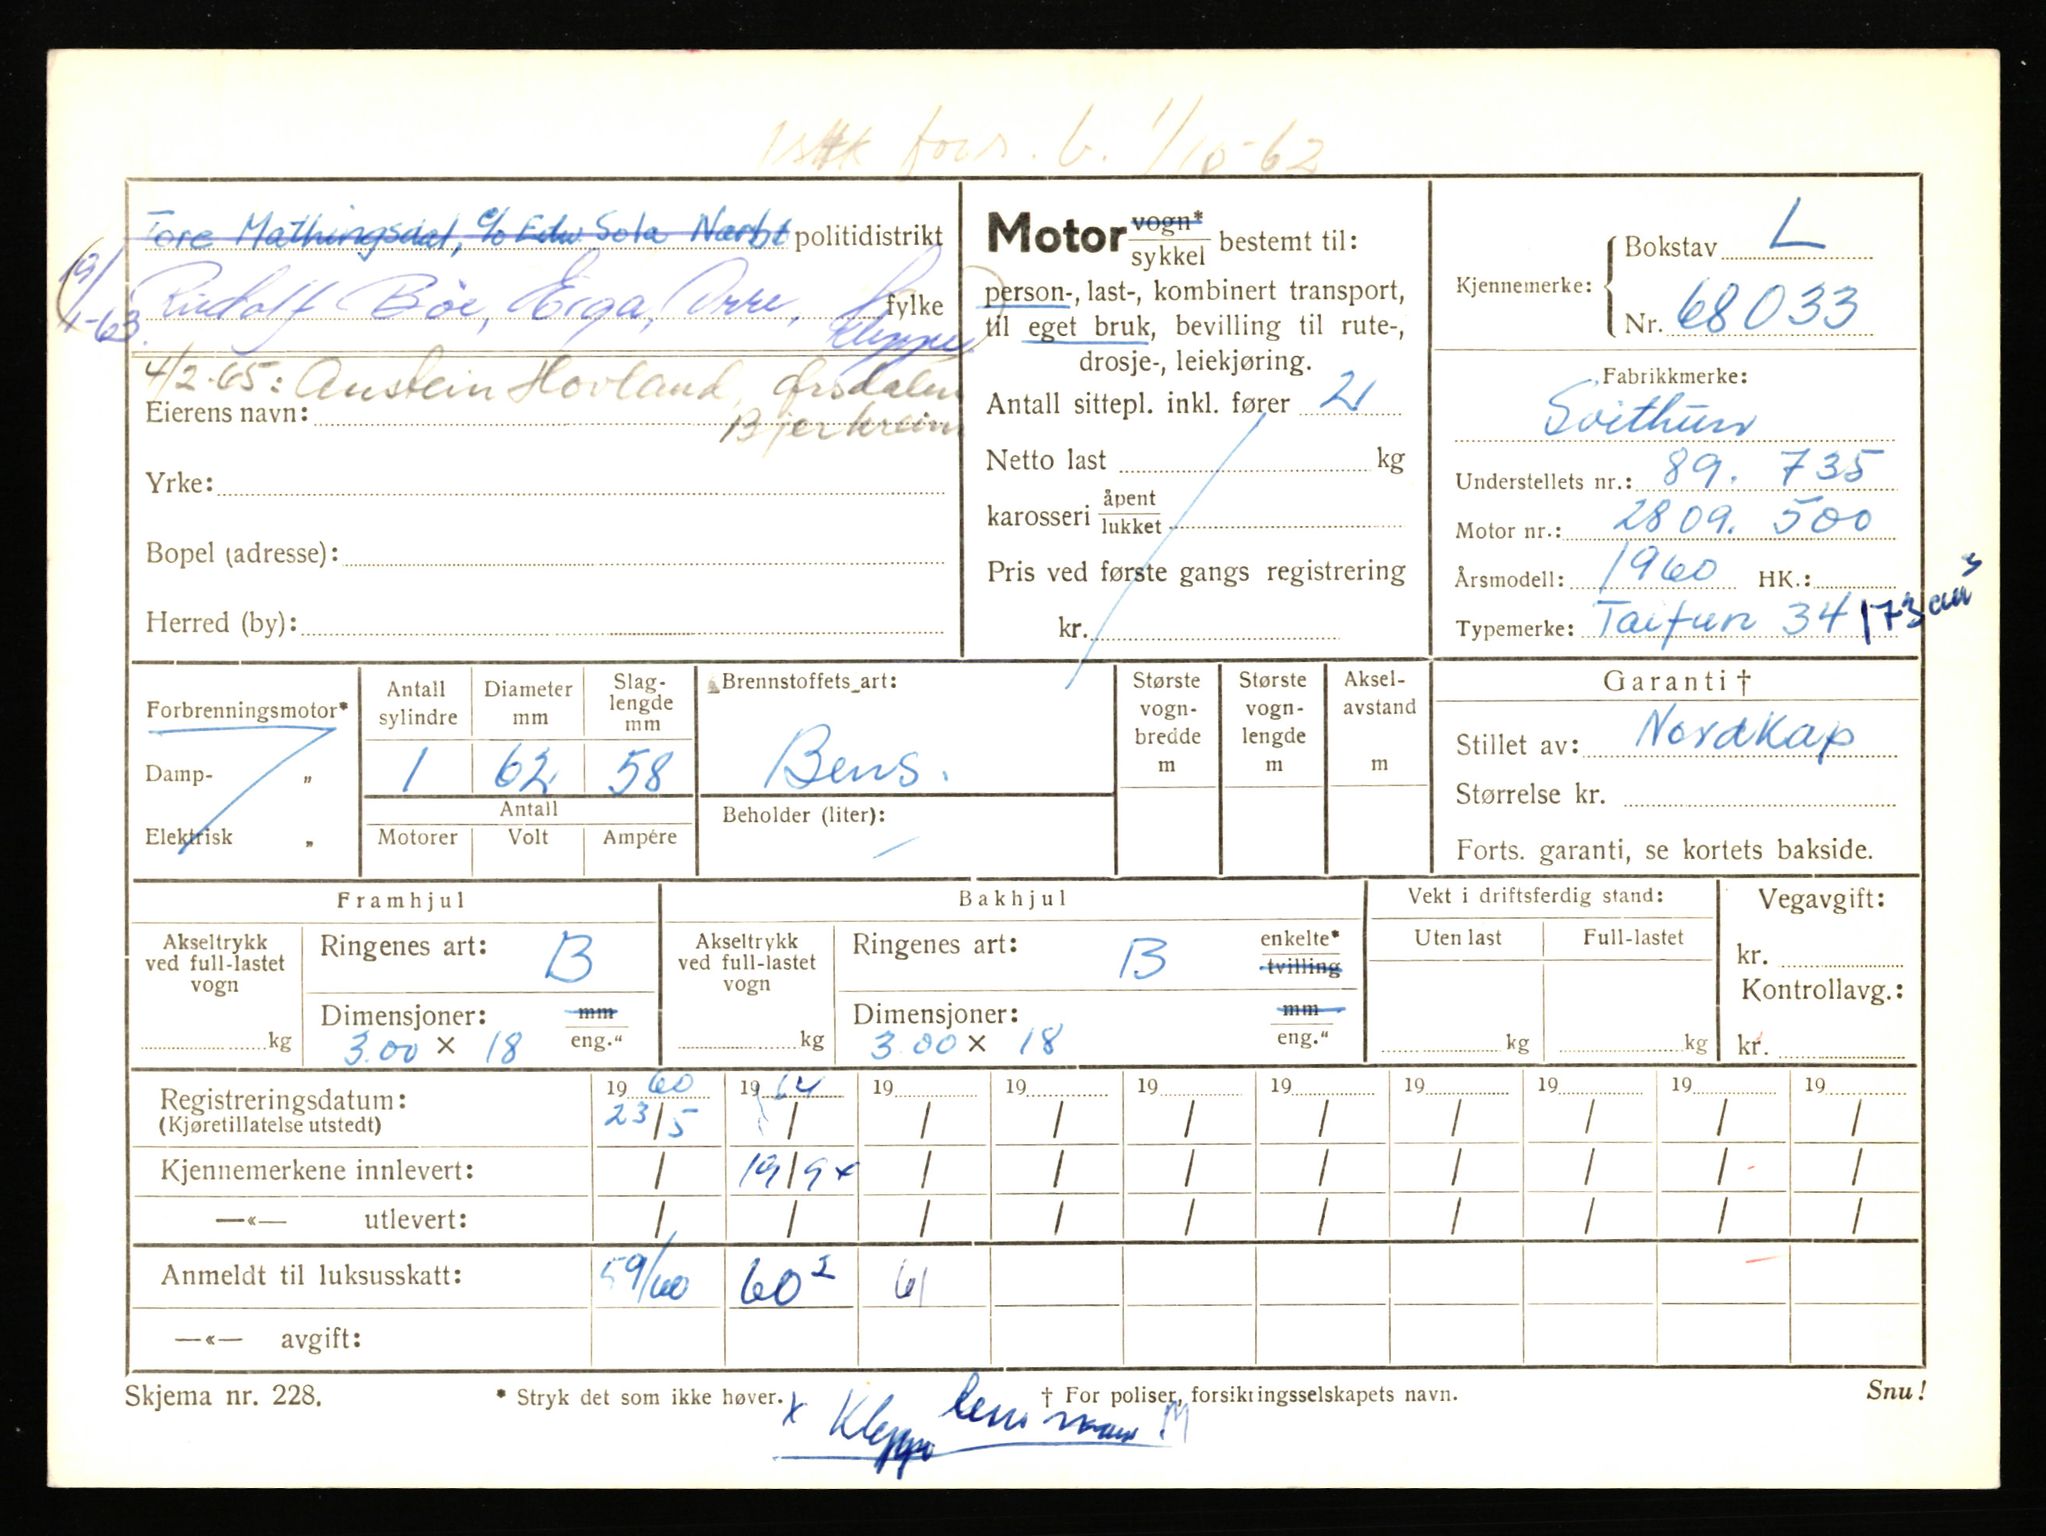 fors. b. 1/10-62
Tore Mathingsdal, c/o Edw. Sola Nærbø politidistrikt
19/
1-63.
Rudolf Bøe, Erga, Orre, Kleppe fylke
Kleppe
4/2-65: Austein Hovland, Ørsdalen
Bjerkreim
Eierens navn:
Yrke:
Bopel (adresse):
Herred (by):
Motor vogn* sykkel bestemt til:
person-, last-, kombinert transport,
til eget bruk, bevilling til rute-,
drosje-, leiekjøring.
Antall sittepl. inkl. fører 2
Netto last kg
karosseri åpent lukket
Pris ved første gangs registrering
kr.
Kjennemerke:
Bokstav L
Nr. 68033
Fabrikkmerke:
Svithun
Understellets nr.: 89. 735
Motor nr.: 2809. 500
Årsmodell: 1960 HK.:
Typemerke: Taifun 34 173 cm³
Forbrenningsmotor*
Damp- "
Elektrisk "
Antall sylindre
Diameter mm
Slag-lengde mm
1 62 58
Antall
Motorer Volt Ampére
Brennstoffets art:
Bens.
Beholder (liter): –
Største vogn-bredde m
Største vogn-lengde m
Aksel-avstand m
Garanti †
Stillet av: Nordkap
Størrelse kr.
Forts. garanti, se kortets bakside.
Framhjul
Akseltrykk ved full-lastet vogn
kg
Ringenes art: B
Dimensjoner: mm
3.00 x 18 eng."
Bakhjul
Akseltrykk ved full-lastet vogn
kg
Ringenes art: B enkelte* tvilling
Dimensjoner: mm
3.00 x 18 eng."
Vekt i driftsferdig stand:
Uten last Full-lastet
kg kg
Vegavgift:
kr.
Kontrollavg.:
kr.
Registreringsdatum: 19 60 19 64 19 19 19 19 19 19 19 19
(Kjøretillatelse utstedt) 23/5 / / / / / / / / /
Kjennemerkene innlevert: / 19/9 x / / / / / / / /
—«— utlevert: / / / / / / / / / /
Anmeldt til luksusskatt: 59/60 60² 61
—«— avgift:
Skjema nr. 228. * Stryk det som ikke høver. † For poliser, forsikringsselskapets navn. Snu!
x Kleppe lensmann